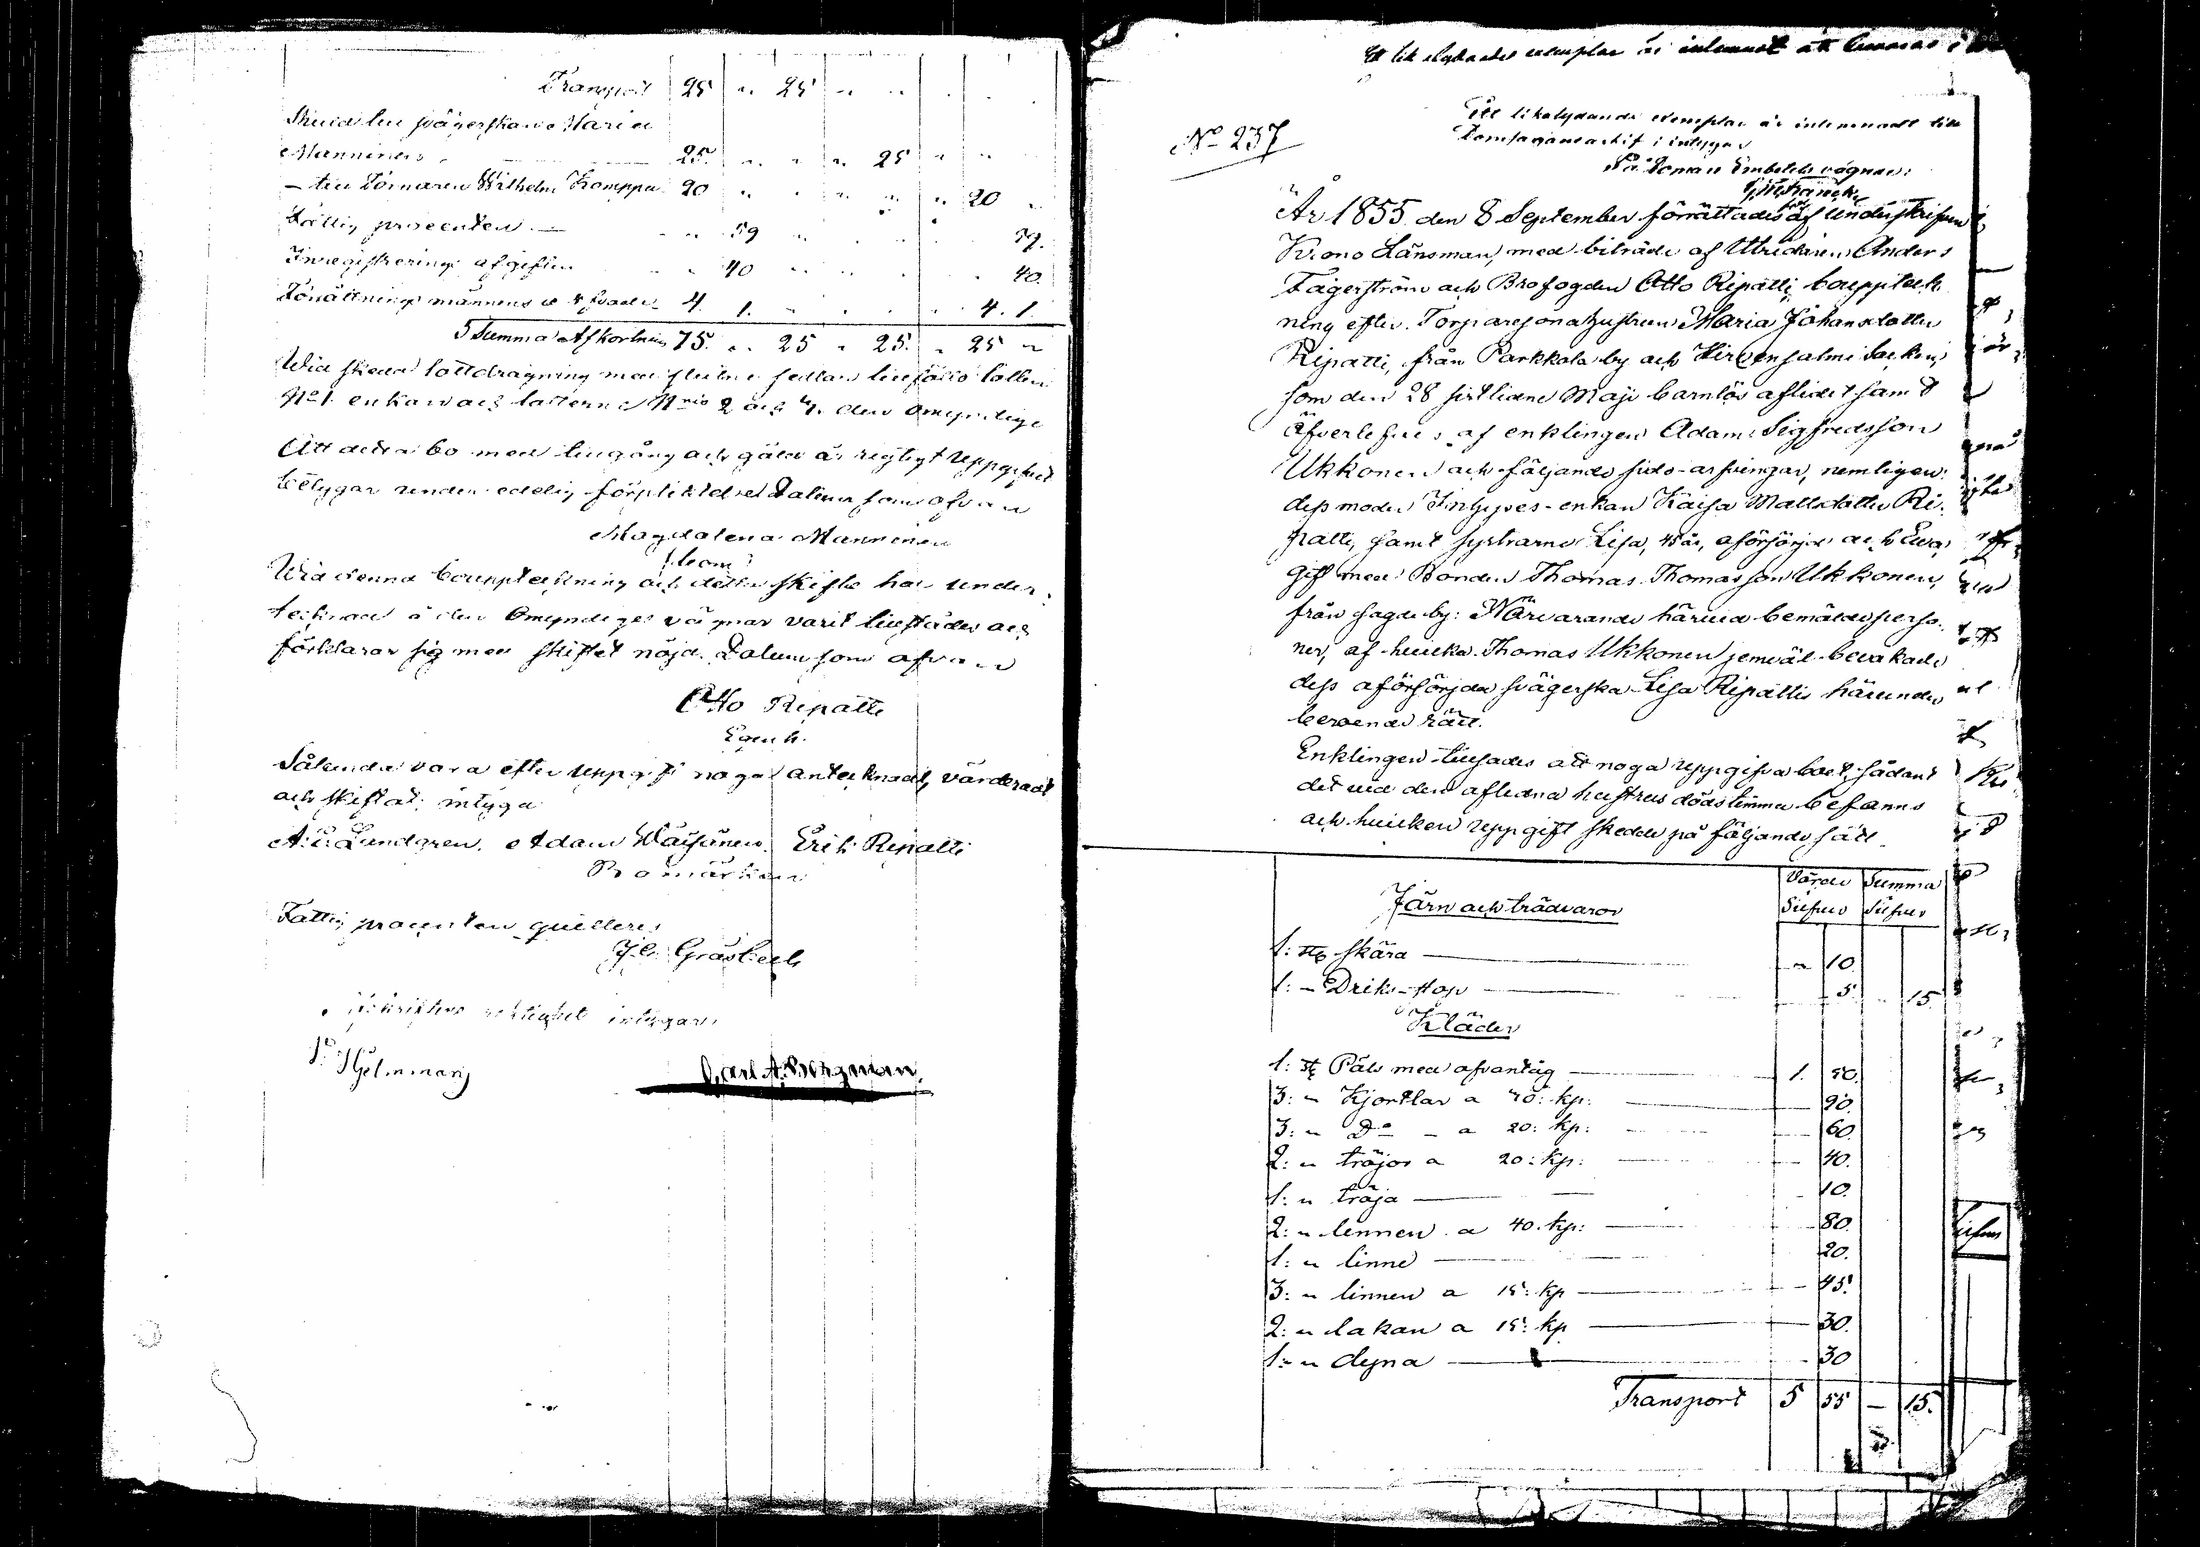 Transport 25 " 25 " "
Skuld till svägerskan Maria
Manninen 25. " " " 25 " "
– till Wilhelm Kamppu 20 " " " " " 20 "
Fattig procenten — " " 59 " 59.
Inregistrerings afgiften " " 40 " 40.
Förrättnings männens 4. 1. 4. 1.
Summa Afkortning 75. " 25 " 25. " 25 "
Wid skedd lottdragning med
No 1. enkan och lotterne Nris 2 och 4. den omyndige
Att detta bo med tillgång och gäld är rigtigt uppgifvet
betygar under edelig förpliktelse Datum som ofvan
Magdalena Manninen
Wid denna bouppteckning och detta skifte har under
tecknad å den Omyndiges vägnar varit tillstädes och
förklarar sig med skiftet nöjd. Datum som ofvan
Otto Ripatti
Egen h.
Sålunda vara efter uppgift noga antecknadt, värderadt
och skiftat; intyga
Lundgren. Adam Wäisänen. Erik Ripatti
Bomärken
Fattig procenten quitteras
Gråsbeck
riktighet intygar
Hjelmman Carl A. Bergman.
Ett lika lydande exemplar är inlemnat att
No 237
Ett likalydande exemplar är inlemnadt till
Domsagans arkif; intygas
På Domare Embetets vägnar:
År 1855 den 8 September förrättades af undertecknad
Krono Länsman, med biträde af Utridaren Anders
Fagerström och Brofogden Otto Ripatti, bouppteck
ning efter Torparesonahustrun Maria Johansdotter
Ripatti, från Parkkola by och Hirvensalmi Socken,
som den 28 sistlidne Maji barnlös aflidit samt
öfverlefves af enklingen Adam Sigfredsson
Ukkonen och följande sido-arfvingar, nemligen:
dess moder Inhyses-enkan Kaisa Mattsdotter Ri-
patti, samt systrarne Lisa, 45 år, oförsörjd och Ewa,
gift med Bonden Thomas Thomasson Ukkonen,
från sagde by: Närvarande härvid bemälde perso-
ner, af hvilka Thomas Ukkonen jemväl bevakade
dess oförsörjda svägerska Lisa Ripattis härunder
beroende rätt.
Enklingen tillsades att noga uppgifva boet, sådant
det vid den aflidna hustruns dödstimma befanns
och hvilken uppgift skedde på följande sätt
Värde Summa
Silfver Silfver
Järn och trädvaror
1: st skära — " 10.
1: – Driks-stop — 5. " 15
Kläder
1: st Päls med ofvantåg — 1. 50.
3: " Kjortlar a 30: kp: — 90.
3: " Do – a 20: kp: — 60.
2: " tröjor a 20: kp: — 40.
1: " tröja — 10.
2: " linnen a 40. kp: — 80.
1: " linne — 20.
3: " linnen a 15: kp — 45.
2: " lakan a 15: kp — 30.
1: " dyna — 30
Transport 5 55 – 15.